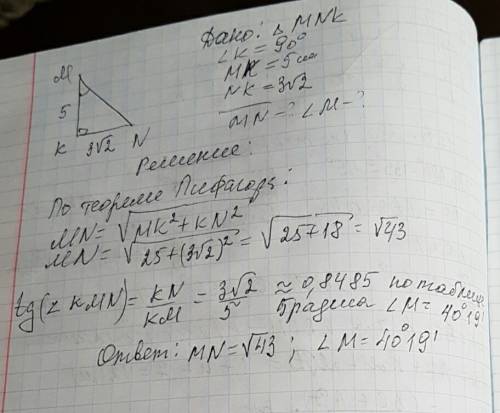 Дано: △ MNK
∠K = 90°
MK = 5 см
NK = 3√2
MN = ? ∠M - ?
M
5
K 3√2 N
Решение:
По теореме Пифагора:
MN = √MK² + KN²
MN = √25 + (3√2)² = √25 + 18 = √43
tg(∠KMN) = KN/KM = 3√2/5 ≈ 0,8485 по таблице
Брадиса ∠M = 40°19'
Ответ: MN = √43 ; ∠M = 40°19'